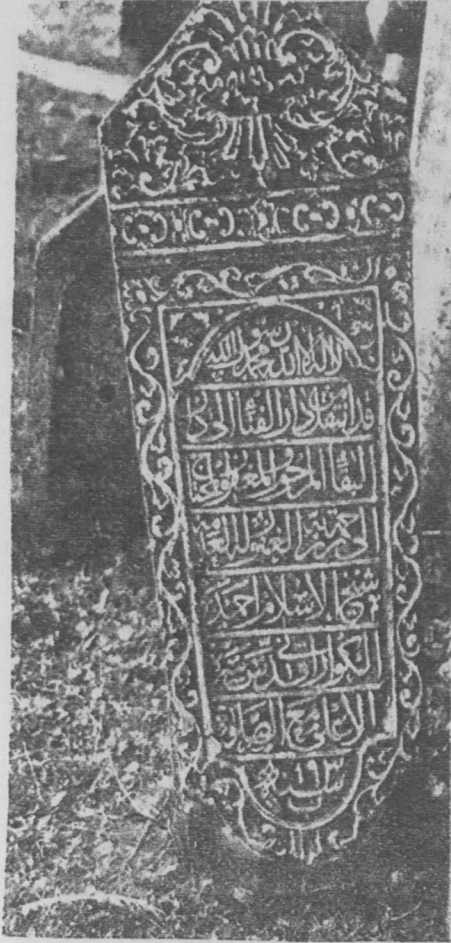 لا اله الا الله محمد رسول الله
قد انتقل من دار الفنا الى دار
البقا المرحوم المغفور المحتاج
الى رحمة ربه الغفور العلامة
شيخ الاسلام احمد
الكوراني قدس سره
الاعلى مع الصلوة
سنة ١١٩٣